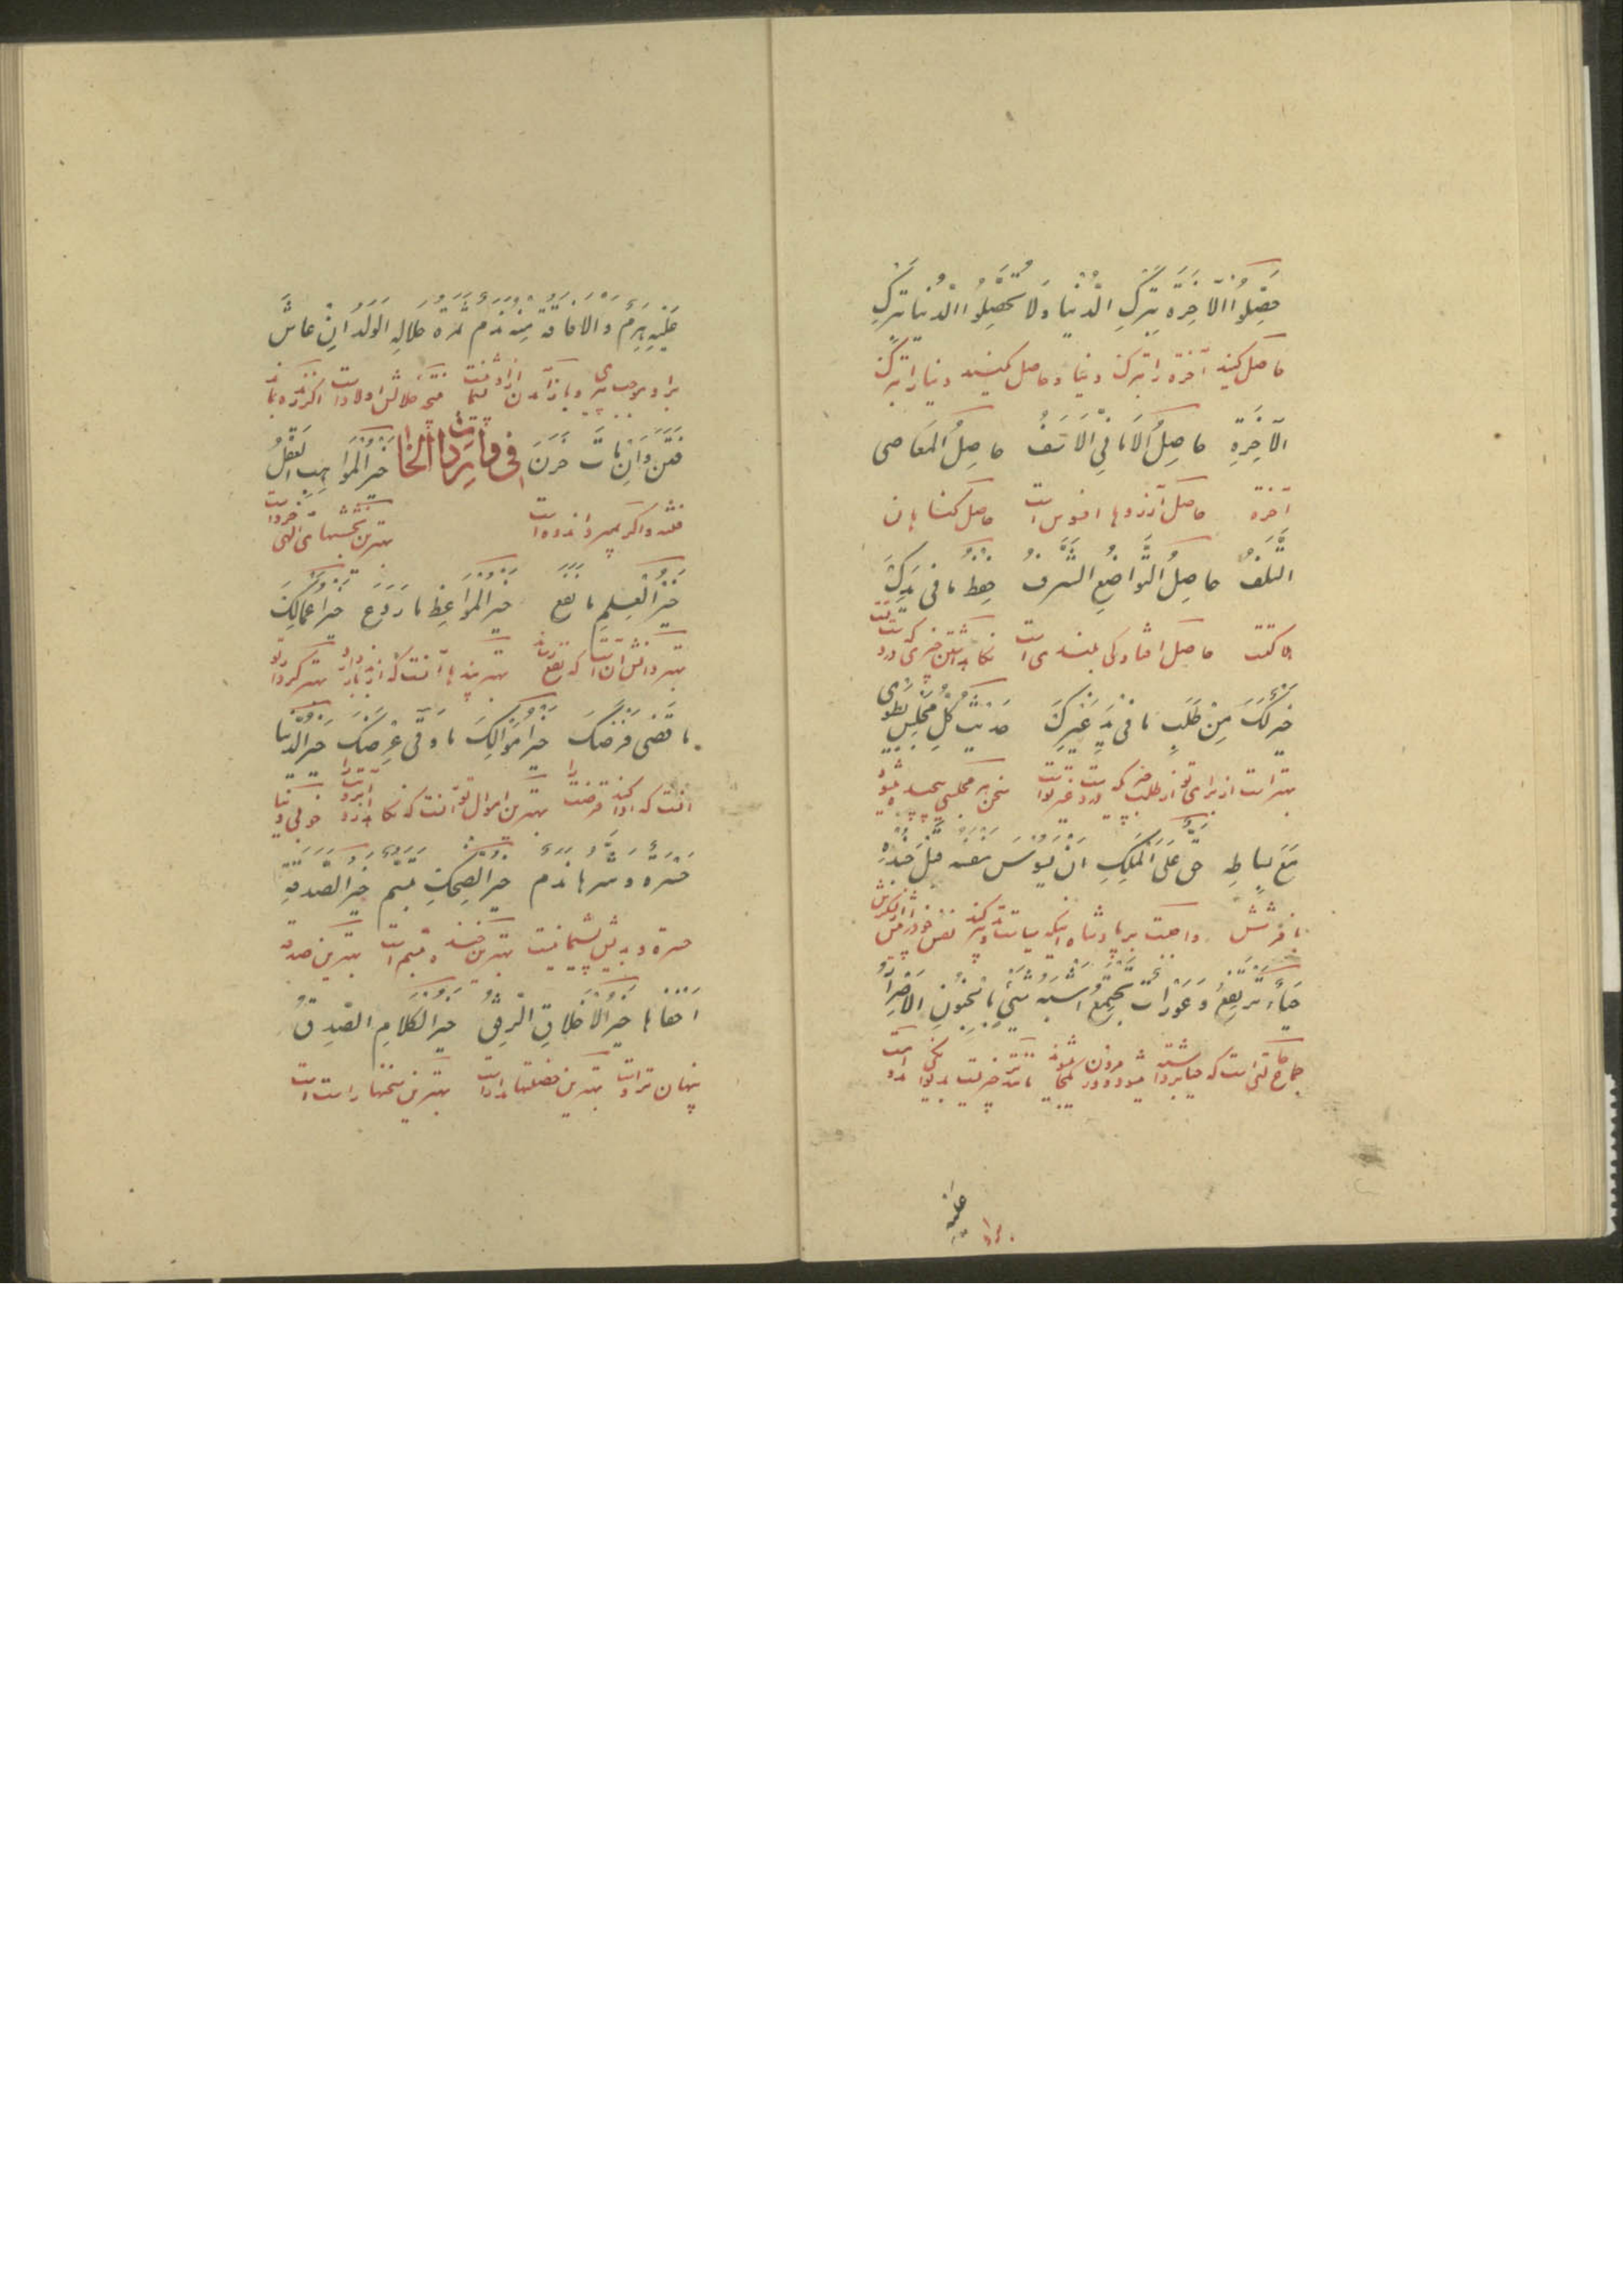 حَصِّلُوا الآخِرَة بِتَرْكِ الدُّنْيا وَلا تُحَصِّلُوا الدُّنْيا بِتَرْكِ
حاصل کنید آخرة را بترک دنیا و حاصل مکنید دنیا را بترک
الآخِرَةِ حاصِلُ الأَمانِيِّ الأَسَفُ حاصِلُ المَعاصِى
آخرة حاصل آرزوها افسوس است حاصل کناهان
التَّلَفُ حاصِلُ التَّواضُعِ الشَّرَفُ حِفْظُ ما فى يَدِكَ
هلاکتت حاصل افتادکی بلندی است نکاهداشتن چیزی که در دست تست
خَيْرٌ لَكَ مِنْ طَلَبِ ما فى يَدِ غَيْرِكَ حَدِيثُ كُلِّ مَجْلِسٍ يُطْوى
بهتر است از برای تو از طلب چیزی که در دست غیر تو است سخن هر مجلسی پیچیده میشود
مَعَ بِساطِهِ حَقٌّ عَلَى المَلِكِ أَنْ يَسُوسَ نَفْسَهُ قَبْلَ جُنْدِهِ
با فرشش واجبست بر پادشاه اینکه سیاست و تدبیر کند نفس خود را پیش از لشکرش
حَياءٌ يَرْتَفِعُ وَ عَوْراتٌ تَجْتَمِعُ أَشْبَهُ شَيْءٍ بِالْجُنُونِ الإِصْرارُ
عَلَيْهِ
برا
عَلَيْهِ هَرَمٌ وَالإِفاقَةُ مِنْهُ نَدَمٌ ثَمَرَةُ حَلالِهِ الوَلَدُ إِنْ عاشَ
براو موجب پیری و باز آمدن از او ندامت نتیجه حلالش اولاد است اکر زنده بماند
فَتَنَ وَإِنْ ماتَ حَزَنَ فى ما وَرَدَ بِالخاءِ خَيْرُ المَواهِبِ العَقْلُ
فتنه و اکر بمیرد اندوه است بهترین بخششهای الهی خرد است
خَيْرُ العِلْمِ ما نَفَعَ خَيْرُ المَواعِظِ ما رَدَعَ خَيْرُ أَعْمالِكَ
بهتر دانش آن است که نفع رساند بهتر پندها آنست که باز دارد بهتر کردار تو
ما قَضى فَرْضَكَ خَيْرُ أَمْوالِكَ ما وَقى عِرْضَكَ خَيْرُ الدُّنْيا
آنست که ادا کند فرضت را بهترین اموال تو آنست که نکاه دارد آبروت را خوبی دنیا
حَسْرَةٌ وَ شَرُّها نَدَمٌ خَيْرُ الضِّحْكِ تَبَسُّمٌ خَيْرُ الصَّدَقَةِ
حسرة و بدیش پشیمانیست بهترین خنده تبسم است بهترین صدقه
أَخْفاها خَيْرُ الأَخْلاقِ الرِّفْقُ خَيْرُ الكَلامِ الصِّدْقُ
پنهان تر است بهترین خصلتها مدار است بهترین سخنها راست است